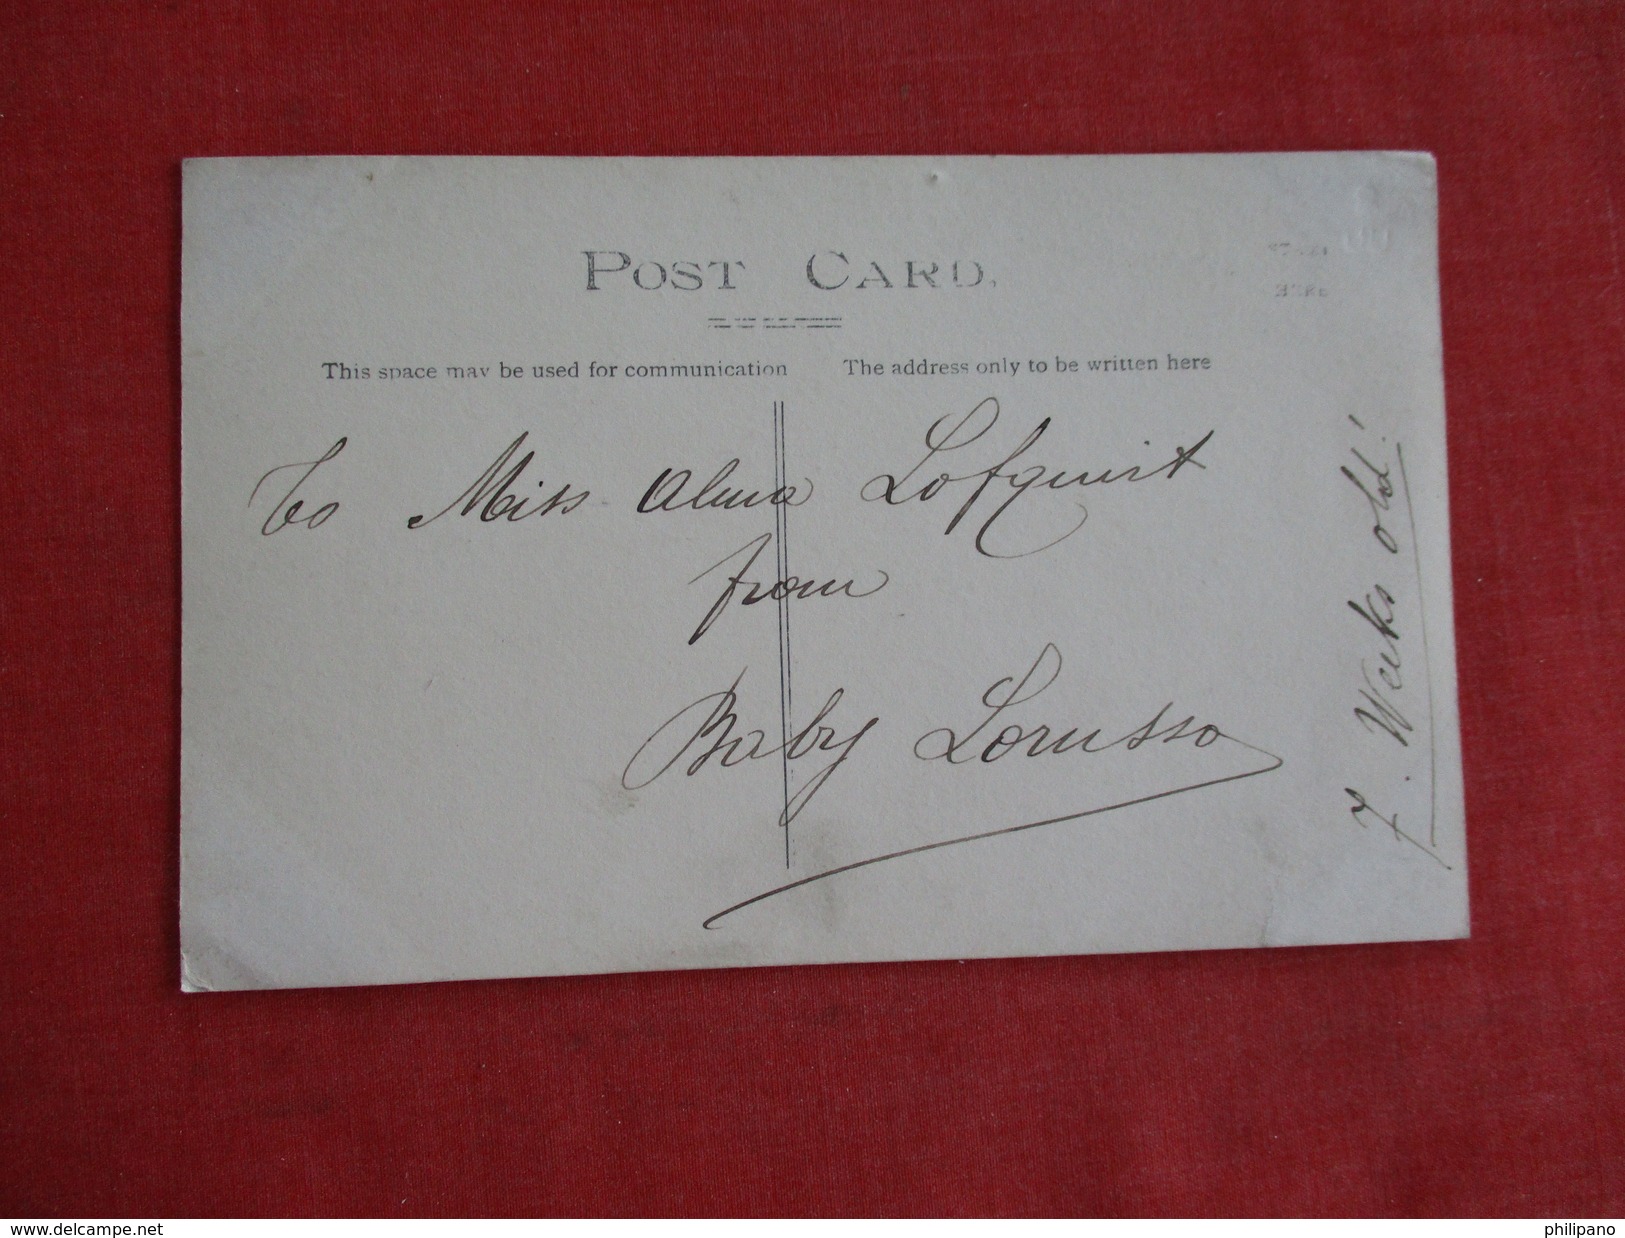 POST CARD.
This space may be used for communication
The address only to be written here
To Miss Alma Lofquist
from
Baby Lorusso
7. Weeks old!
HERE
www.delcampe.net
philipano